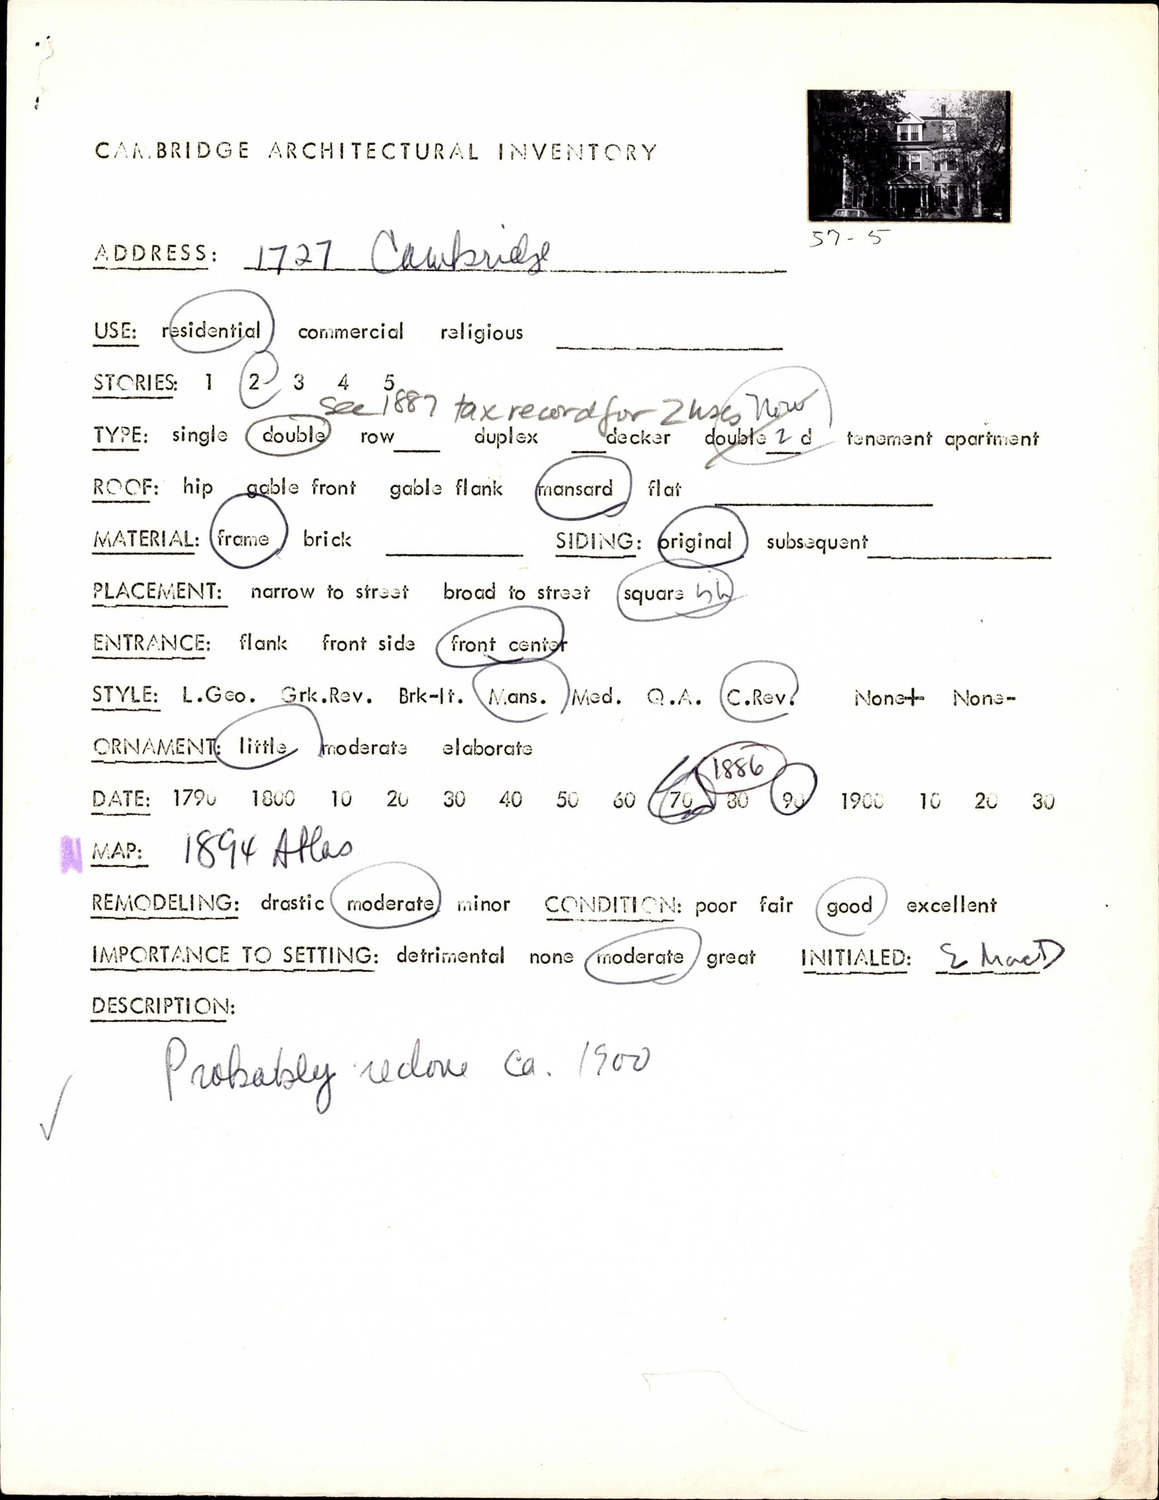 CAMBRIDGE ARCHITECTURAL INVENTORY
57-5
ADDRESS: 1727 Cambridge
USE: residential commercial religious
STORIES: 1 2 3 4 5
See 1887 tax record for 2 hses Now
TYPE: single double row duplex decker double 2 d tenement apartment
ROOF: hip gable front gable flank mansard flat
MATERIAL: frame brick SIDING: original subsequent
PLACEMENT: narrow to street broad to street square
ENTRANCE: flank front side front center
STYLE: L.Geo. Grk.Rev. Brk-It. Mans. Med. Q.A. C.Rev? None+ None-
ORNAMENT: little moderate elaborate
1886
DATE: 1790 1800 10 20 30 40 50 60 70 80 90 1900 10 20 30
MAP: 1894 Atlas
REMODELING: drastic moderate minor CONDITION: poor fair good excellent
IMPORTANCE TO SETTING: detrimental none moderate great INITIALED: E MacD
DESCRIPTION:
Probably redone ca. 1900